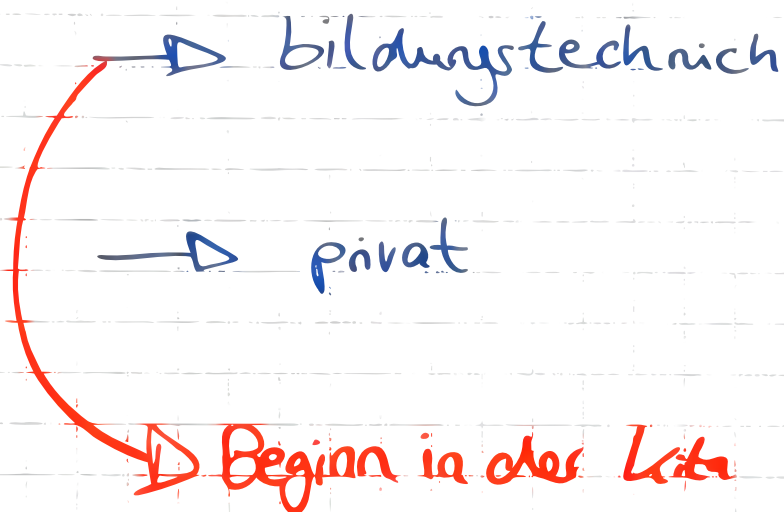 bildungstechnich
privat
Beginn in der Kita